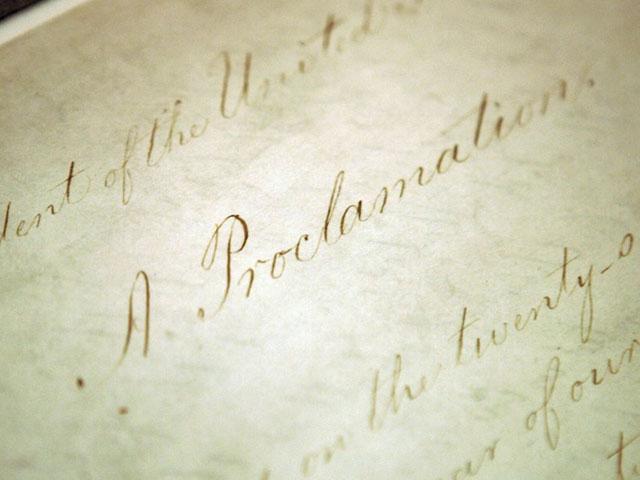 dent of the United
A Proclamation.
on the twenty-s
ar of our
t